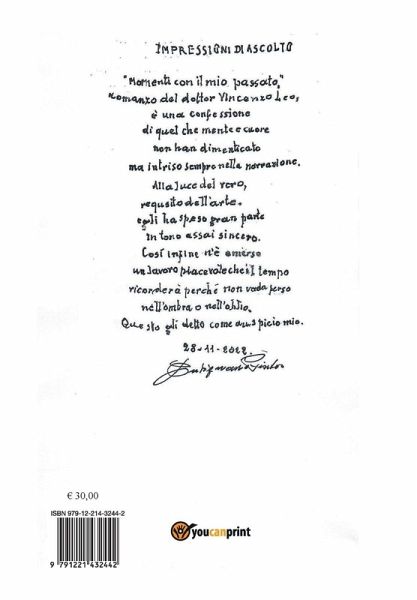 IMPRESSIONI DI ASCOLTO
"Momenti con il mio passato,"
romanzo del dottor Vincenzo Leo,
è una confessione
di quel che mente e cuore
non han dimenticato
ma intriso sempre nella narrazione.
Alla luce del vero,
requisito dell'arte.
egli ha speso gran parte
in tono assai sincero.
Così infine n'è emerso
un lavoro piacevole che il tempo
ricorderà perché non vada perso
nell'ombra o nell'oblio.
Questo gli detto come auspicio mio.
28-11-2022
€ 30,00
ISBN 979-12-214-3244-2
9 791221 432442
youcanprint